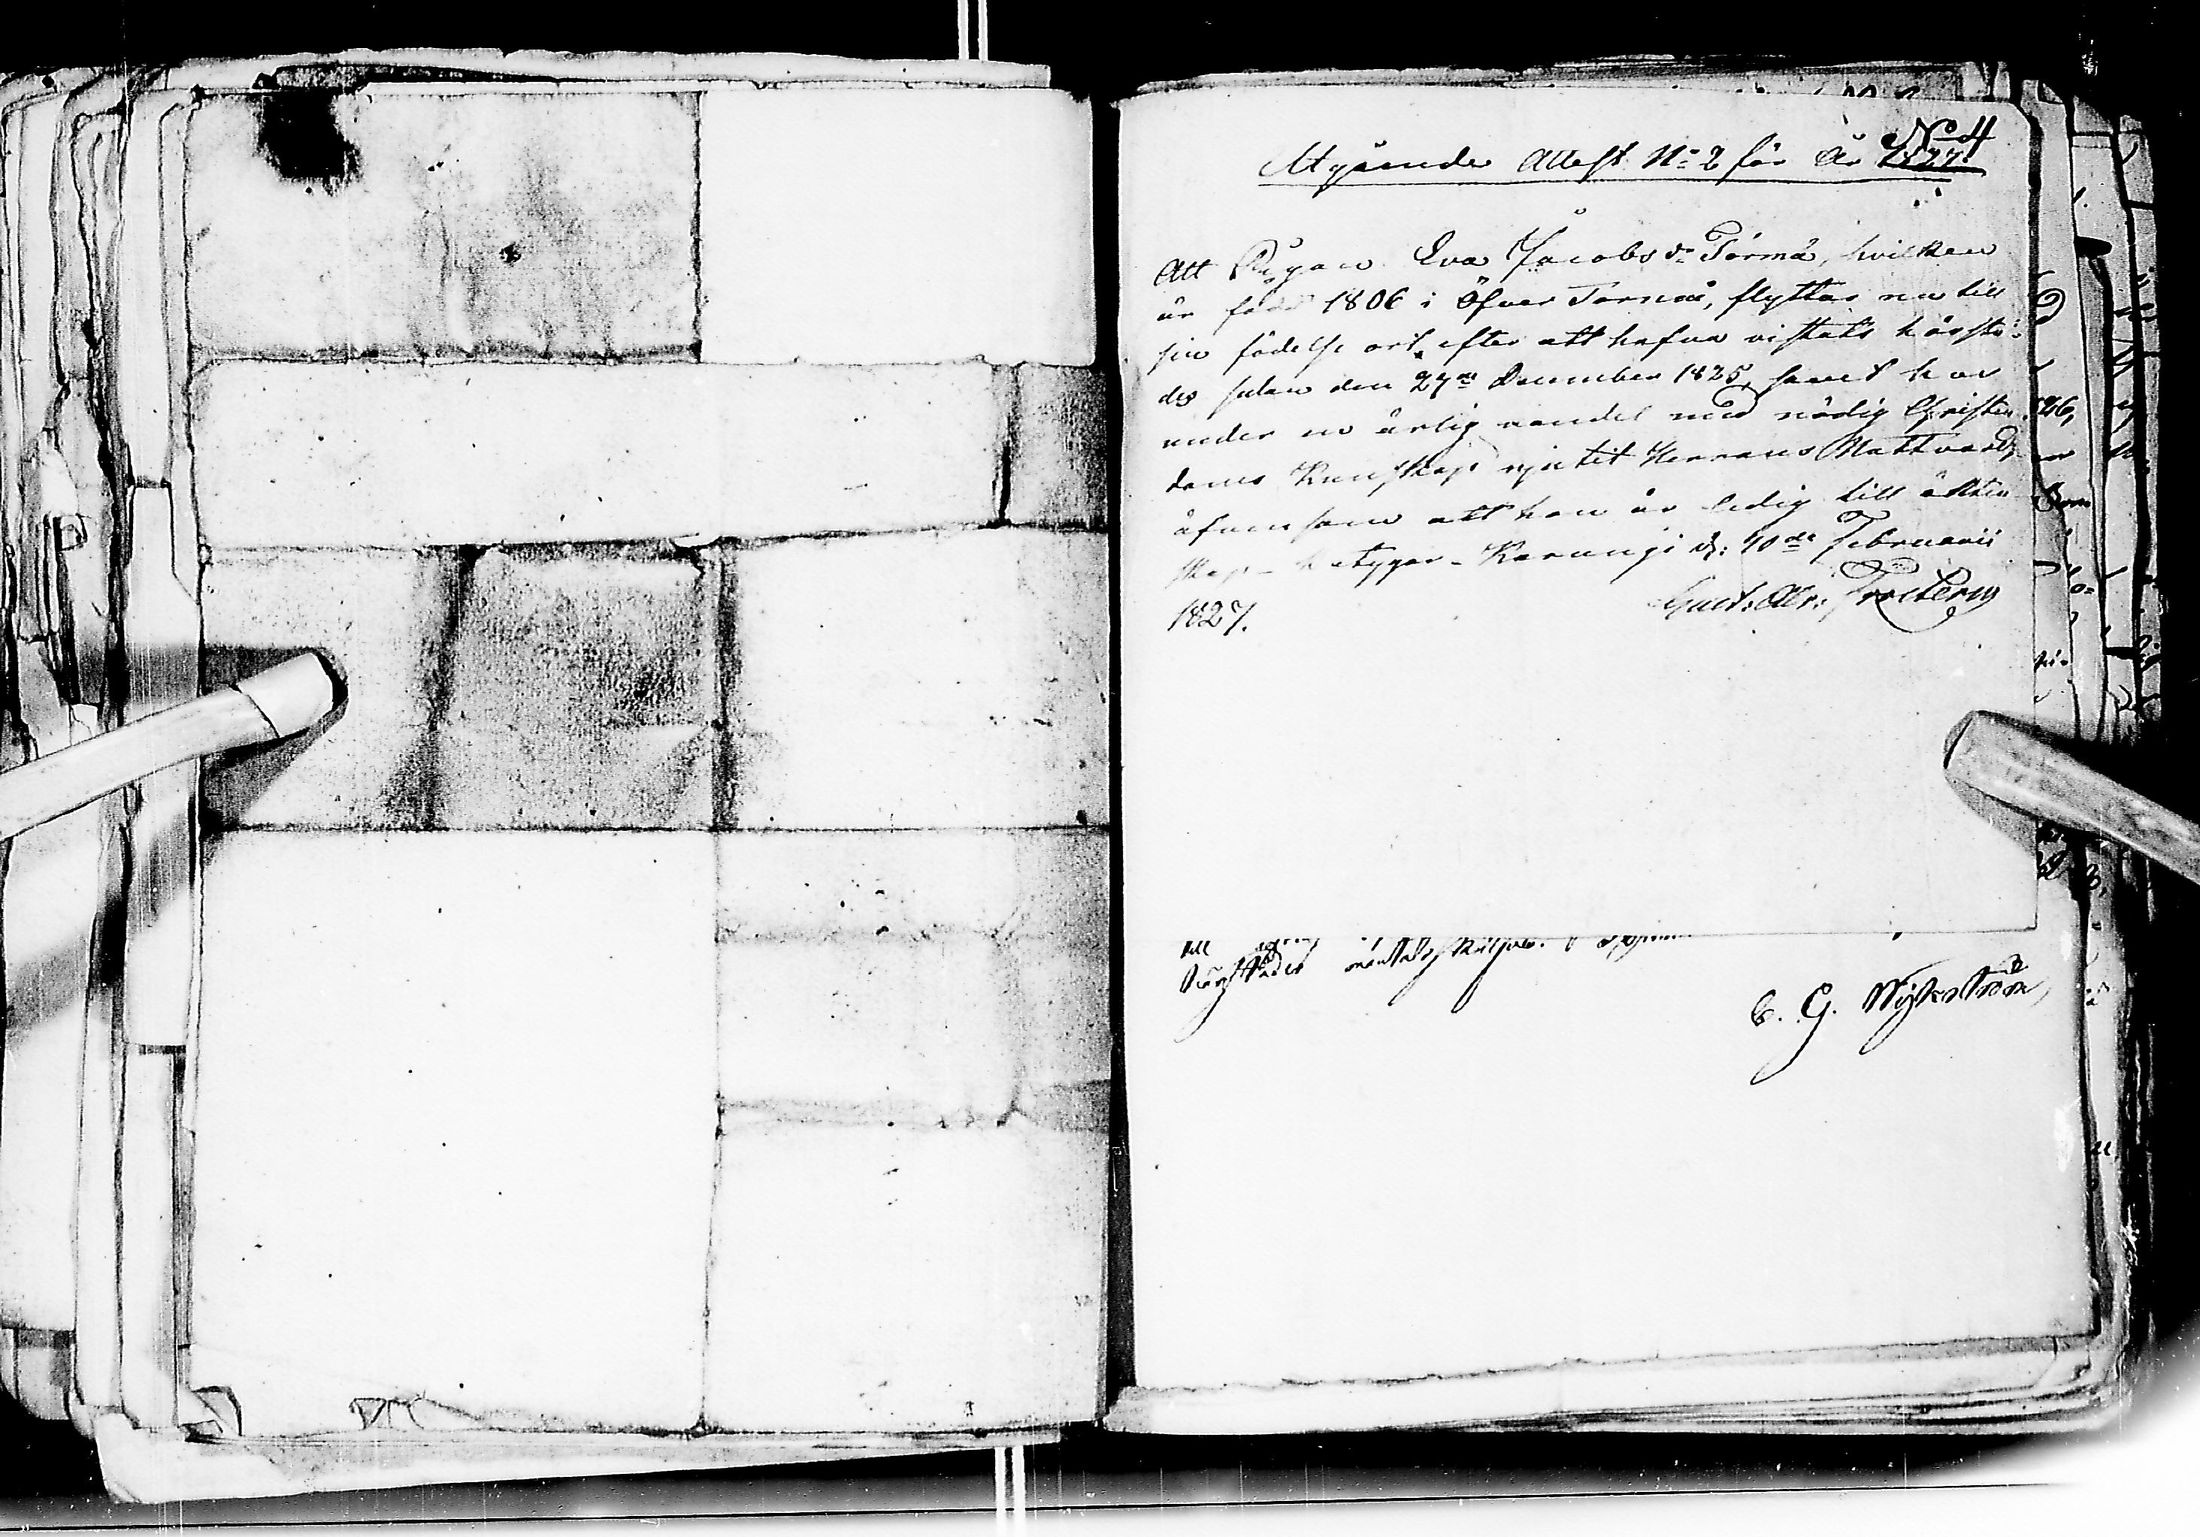 No 4
Utgående Attest No 2 för År 1827.
Att Pigan Eva Jacobs dr Törmä, hvilken
är född 1806 i Öfver Torneå, flyttar nu till
sin födelse ort, efter att hafva vistats härstä-
des sedan den 27de December 1825, samt har
under en ärlig vandel med nödig Christen-
doms Kunskap njutit Herrans Nattvard,
äfvensom att hon är ledig till ächten-
skap - betygar - Karungi d: 10de Februarii
1827.
Gust: Abr: 
till
C. G. Nyström